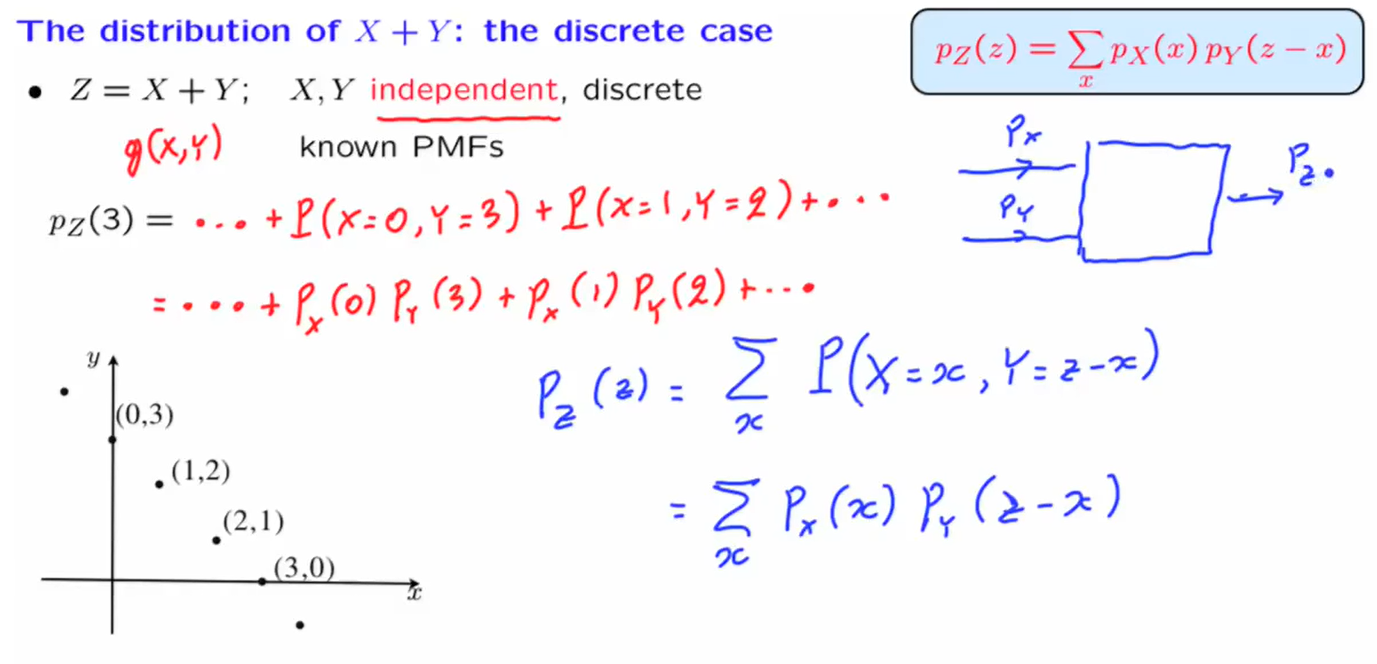 The distribution of X + Y: the discrete case
p_Z(z) = ∑_x p_X(x) p_Y(z − x)
• Z = X + Y; X, Y independent, discrete
g(X,Y) known PMFs
P_X
P_Y
P_Z.
p_Z(3) = ... + P(X=0, Y=3) + P(X=1, Y=2) + ...
= ... + P_X(0) P_Y(3) + P_X(1) P_Y(2) + ...
P_Z(z) = ∑_x P(X=x, Y=z-x)
= ∑_x P_X(x) P_Y(z-x)
y
(0,3)
(1,2)
(2,1)
(3,0)
x